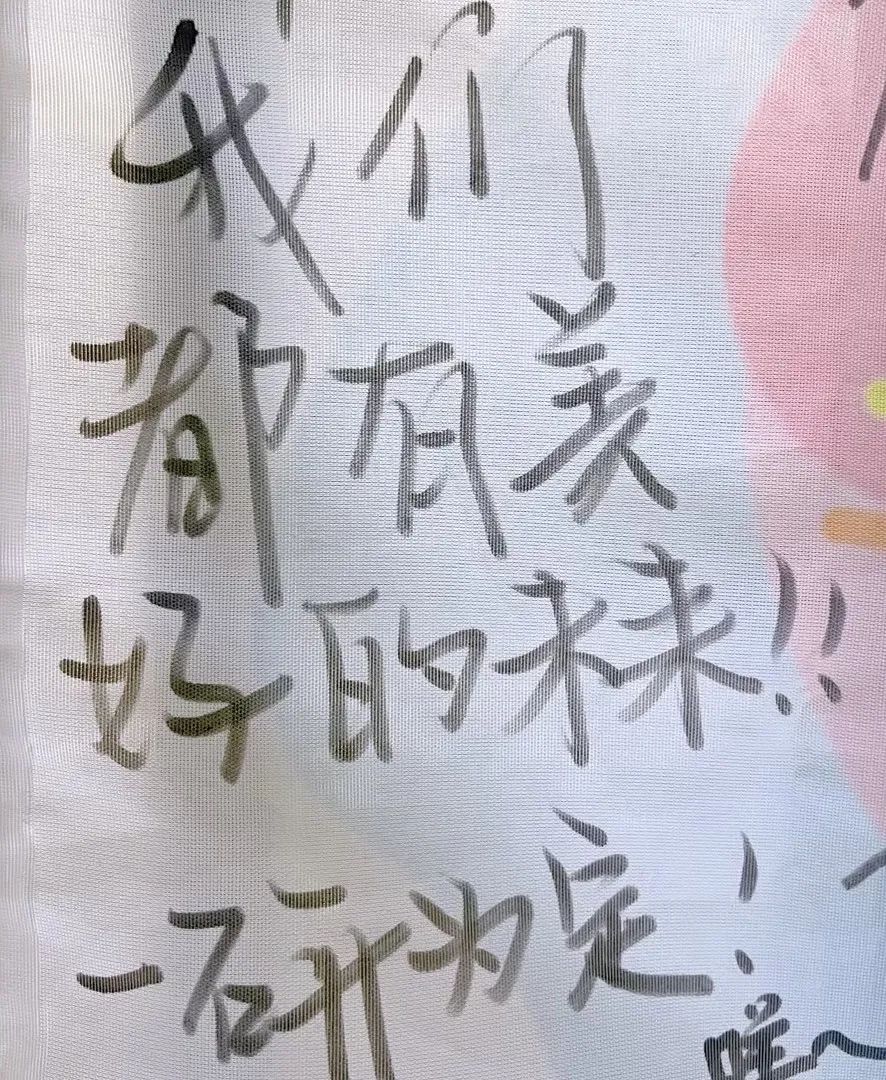 我们
都有美
好的未来!!
一研为定!